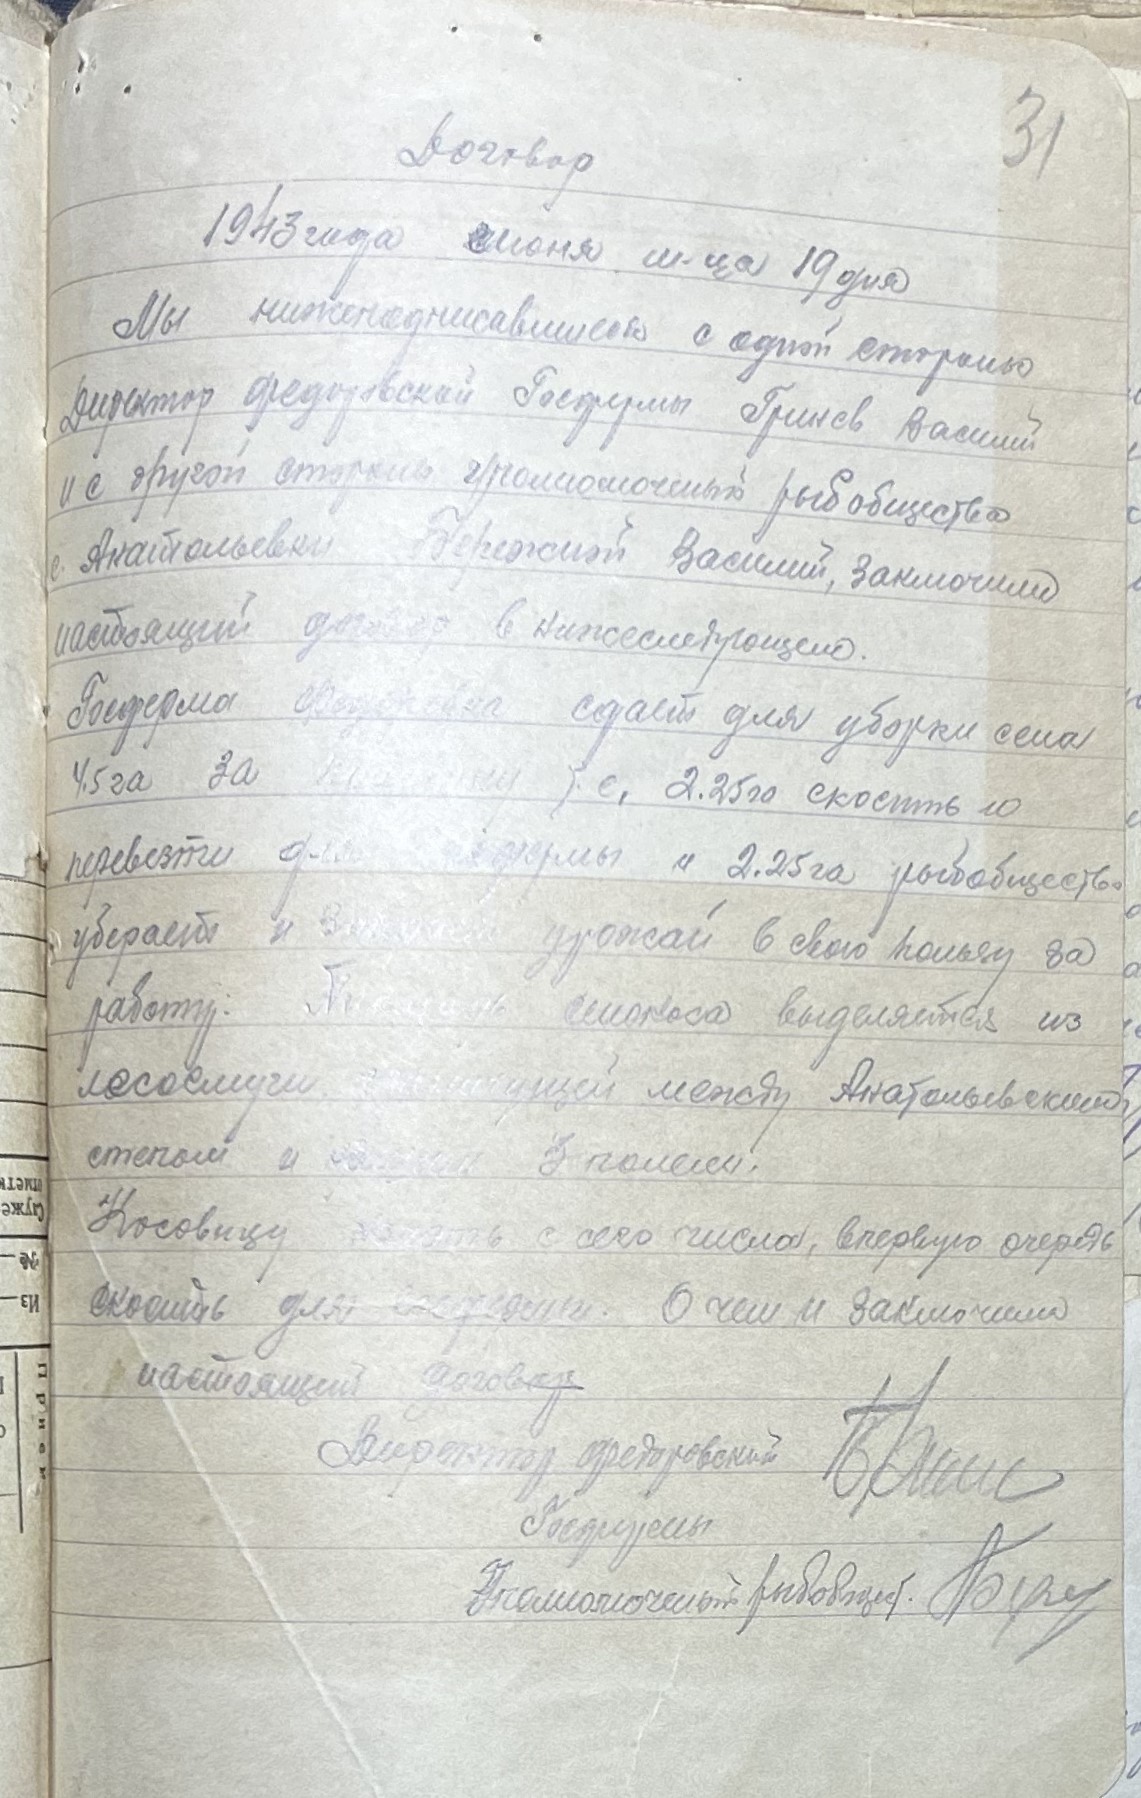 31
Договор
1943 года июня м-ца 19 дня
Мы нижеподписавшиеся с одной стороны
Директор Федоровской Госфермы Гринев Василий
и с другой стороны уполномоченый рыбобщества
с. Анатольевки Бережной Василий, заключили
настоящий договор в нижеследующем.
Госферма Федоровка сдает для уборки сена
4.5 га за т.е. 2.25 га скосить и
перевезти для госфермы и 2.25 га рыбобщество
убирает и урожай в свою пользу за
работу. Площадь сенокоса выделяется из
между Анатольевским
степом и 5 полем.
Косовицу начать с сего числа, впервую очередь
скосить для госфермы. О чем и заключили
настоящий договор
Директор Федоровский
Госфермы
Уполномоченый рыбобщест.